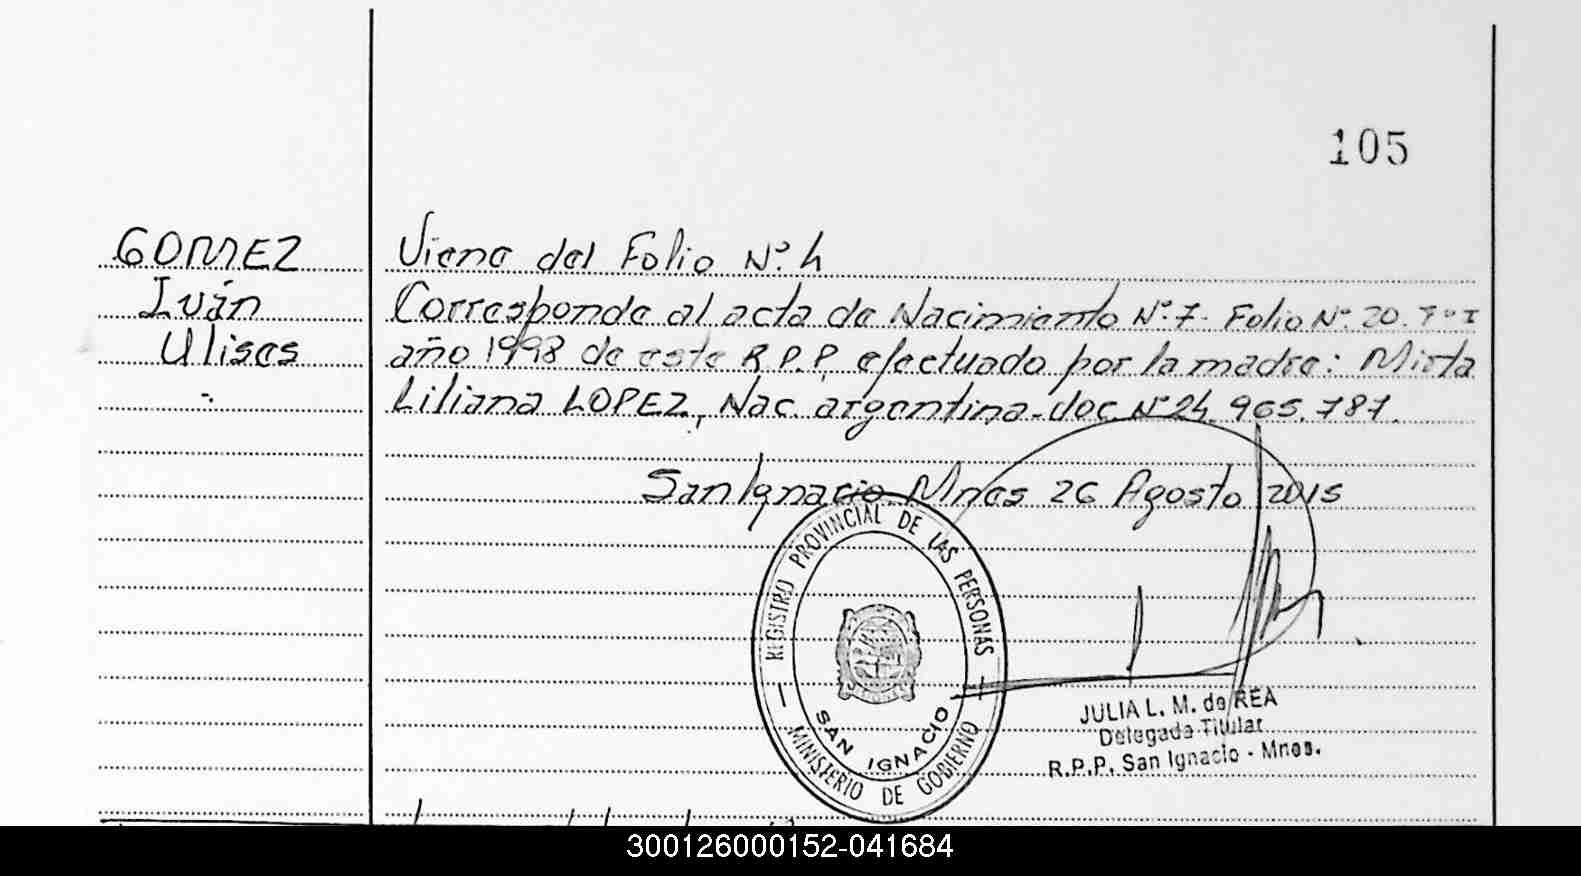 105
GOMEZ
Iván
Ulises
Viene del Folio N°. 4
Corresponde al acta de Nacimiento N°. 7. Folio N°. 20. T° I
año 1998 de este R.P.P, efectuado por la madre: Mirta
Liliana LOPEZ, Nac. argentina-doc N° 24.965.787.
San Ignacio, Mnes 26 Agosto 2015
REGISTRO PROVINCIAL DE LAS PERSONAS
SAN IGNACIO
MINISTERIO DE GOBIERNO
JULIA L. M. de REA
Delegada Titular
R.P.P. San Ignacio - Mnes.
300126000152-041684